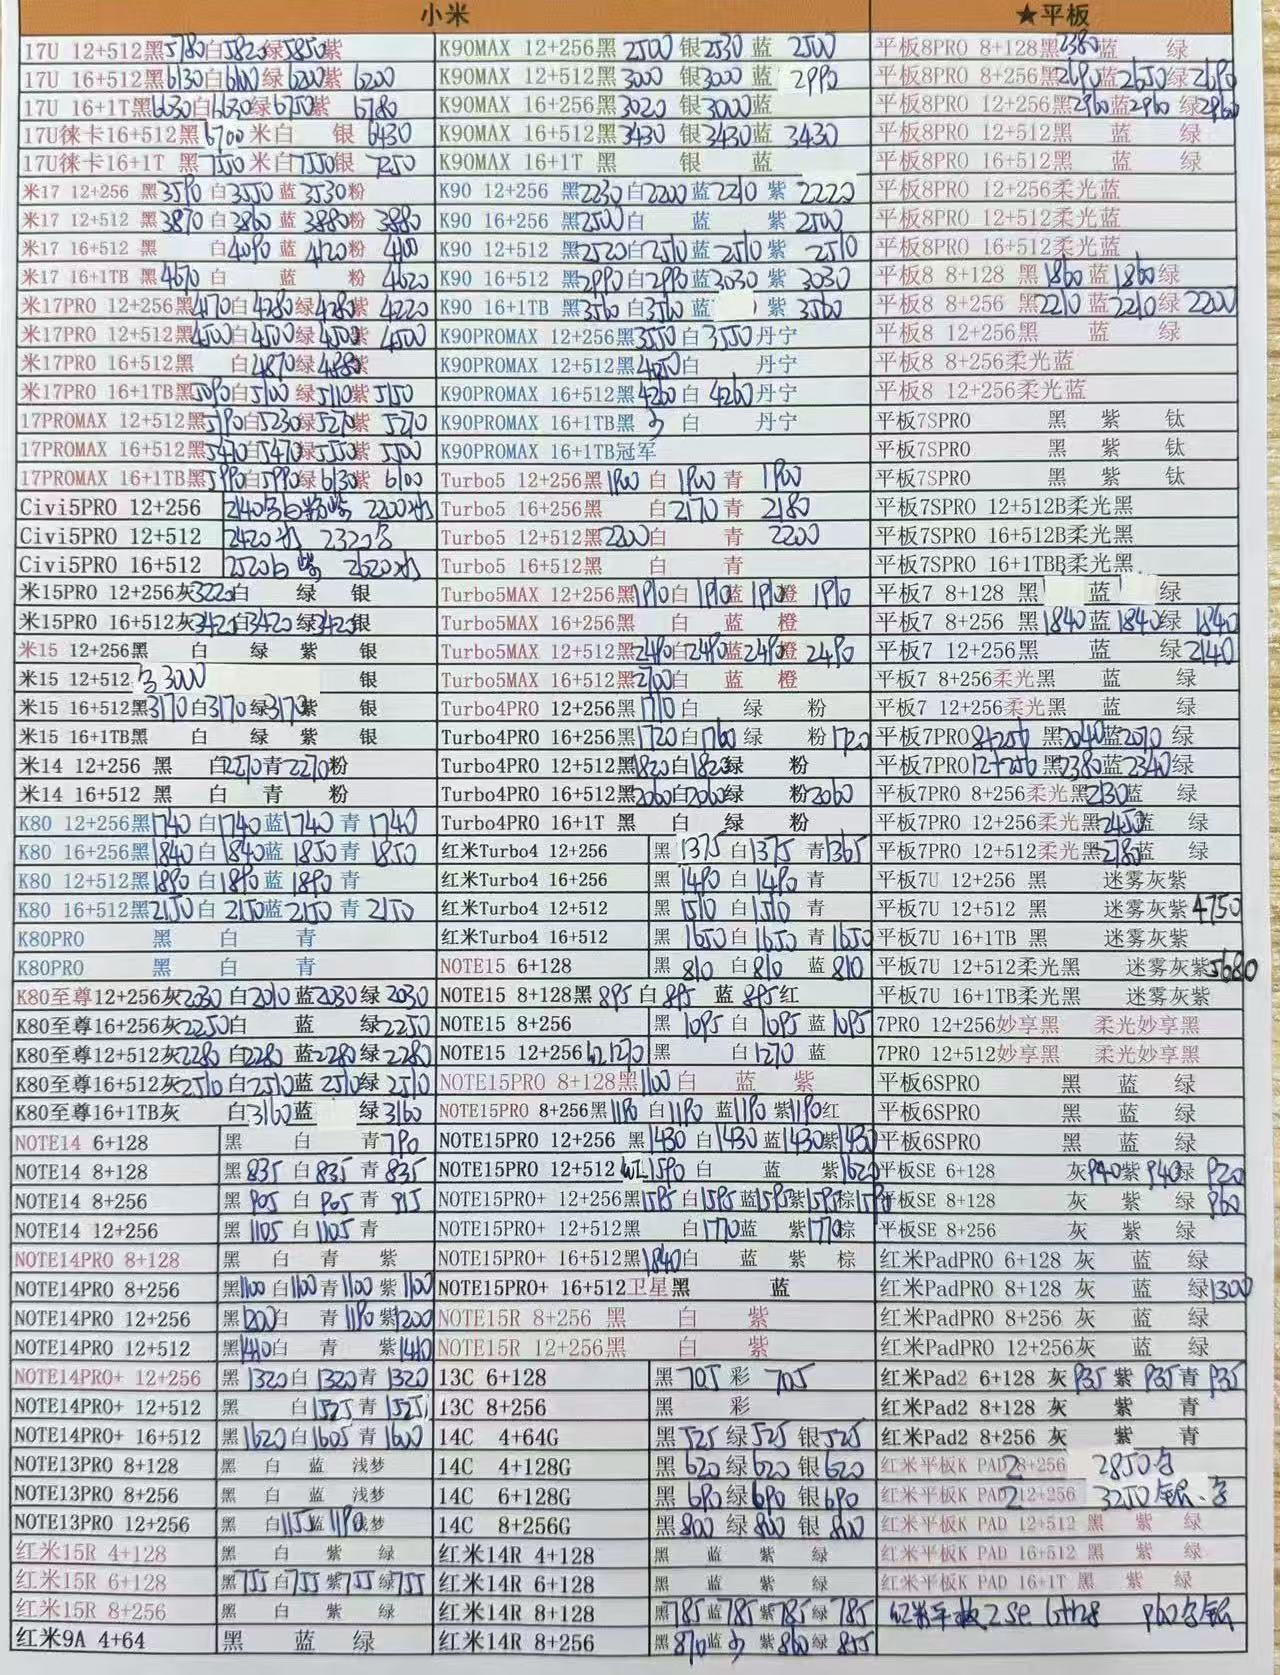 小米
★平板
17U 12+512黑5780白5820绿5850紫
17U 16+512黑6130白6100绿6200紫 6200
17U 16+1T黑6630白6630绿6750紫 6780
17U徕卡16+512黑6700米白 银 6430
17U徕卡16+1T 黑7550米白7550银 7250
米17 12+256 黑3590白3550蓝3530粉
米17 12+512 黑3870白3860蓝3880粉3880
米17 16+512 黑 白4090蓝4120粉4100
米17 16+1TB 黑4670白 蓝 粉 4620
米17PRO 12+256黑4170白4280绿4280紫 4220
米17PRO 12+512黑4500白4500绿4500紫 4500
米17PRO 16+512黑 白4870绿4880紫
米17PRO 16+1TB黑5090白5100绿5110紫5150
17PROMAX 12+512黑5190白5230绿5270紫 5270
17PROMAX 16+512黑5470白5470绿5550紫 5500
17PROMAX 16+1TB黑5990白5990绿6130紫 6100
Civi5PRO 12+256
Civi5PRO 12+512
Civi5PRO 16+512
米15PRO 12+256灰3220白 绿 银
米15PRO 16+512灰3420白3420绿3420银
米15 12+256黑 白 绿 紫 银
米15 12+512 3000 银
米15 16+512黑3170白3170绿3170紫 银
米15 16+1TB黑 白 绿 紫 银
米14 12+256 黑 白2270青2270粉
米14 16+512 黑 白 青 粉
K80 12+256黑1740白1740蓝1740青 1740
K80 16+256黑1840白1840蓝1850青 1850
K80 12+512黑1890白1890蓝1890青
K80 16+512黑2150白2150蓝2150青 2150
K80PRO 黑 白 青
K80PRO 黑 白 青
K80至尊12+256灰2030白2010蓝2030绿2030
K80至尊16+256灰2250白 蓝 绿2250
K80至尊12+512灰2280白2280蓝2280绿2280
K80至尊16+512灰2510白2510蓝2510绿2510
K80至尊16+1TB灰 白3160蓝 绿3160
NOTE14 6+128 黑 白 青790
NOTE14 8+128 黑835白835青835
NOTE14 8+256 黑905白905青915
NOTE14 12+256 黑1105白1105青
NOTE14PRO 8+128 黑 白 青 紫
NOTE14PRO 8+256 黑1100白1100青1100紫1100
NOTE14PRO 12+256 黑1200白 青1190紫1200
NOTE14PRO 12+512 黑1410白 青 紫1410
NOTE14PRO+ 12+256 黑1320白1320青1320
NOTE14PRO+ 12+512 黑 白1525青1525
NOTE14PRO+ 16+512 黑1620白1605青1600
NOTE13PRO 8+128 黑 白 蓝 浅梦
NOTE13PRO 8+256 黑 白 蓝 浅梦
NOTE13PRO 12+256 黑 白1155蓝1190浅梦
红米15R 4+128 黑 白 紫 绿
红米15R 6+128 黑755白755紫755绿755
红米15R 8+256 黑 白 紫 绿
红米9A 4+64 黑 蓝 绿
K90MAX 12+256黑2500银2530蓝 2500
K90MAX 12+512黑3000银3000蓝 2990
K90MAX 16+256黑3020银3000蓝
K90MAX 16+512黑3430银3430蓝3430
K90MAX 16+1T 黑 银 蓝
K90 12+256 黑2230白2200蓝2210紫 2220
K90 16+256 黑2500白 蓝 紫 2500
K90 12+512 黑2520白2510蓝2510紫 2510
K90 16+512 黑2990白2990蓝3030紫 3030
K90 16+1TB 黑3560白3560蓝 紫 3560
K90PROMAX 12+256黑3550白3550丹宁
K90PROMAX 12+512黑4050白 丹宁
K90PROMAX 16+512黑4260白4260丹宁
K90PROMAX 16+1TB黑 白 丹宁
K90PROMAX 16+1TB冠军
Turbo5 12+256黑1900白1900青 1900
Turbo5 16+256黑 白2170青 2180
Turbo5 12+512黑2200白 青 2200
Turbo5 16+512黑 白 青
Turbo5MAX 12+256黑1910白1910蓝1910橙 1910
Turbo5MAX 16+256黑 白 蓝 橙
Turbo5MAX 12+512黑2490白2490蓝2490橙 2490
Turbo5MAX 16+512黑2700白 蓝 橙
Turbo4PRO 12+256黑1710白 绿 粉
Turbo4PRO 16+256黑1720白1760绿 粉1720
Turbo4PRO 12+512黑1820白1820绿 粉
Turbo4PRO 16+512黑2060白2060绿 粉2060
Turbo4PRO 16+1T 黑 白 绿 粉
红米Turbo4 12+256 黑1375白1375青1365
红米Turbo4 16+256 黑1490白1490青
红米Turbo4 12+512 黑1510白1510青
红米Turbo4 16+512 黑1650白1650青1650
NOTE15 6+128 黑810白810蓝810
NOTE15 8+128黑895白895蓝895红
NOTE15 8+256 黑1095白1095蓝1095
NOTE15 12+256 1270 黑 白1270蓝
NOTE15PRO 8+128黑1100白 蓝 紫
NOTE15PRO 8+256黑1190白1190蓝1190紫1190红
NOTE15PRO 12+256 黑1430白1430蓝1430紫1430
NOTE15PRO 12+512 1590白 蓝 紫1620
NOTE15PRO+ 12+256黑1595白1595蓝1595紫1595棕
NOTE15PRO+ 12+512黑 白1770蓝 紫1770棕
NOTE15PRO+ 16+512黑1840白 蓝 紫 棕
NOTE15PRO+ 16+512卫星黑 蓝
NOTE15R 8+256 黑 白 紫
NOTE15R 12+256黑 白 紫
13C 6+128 黑705彩 705
13C 8+256 黑 彩
14C 4+64G 黑525绿525银525
14C 4+128G 黑620绿620银620
14C 6+128G 黑690绿690银690
14C 8+256G 黑800绿800银800
红米14R 4+128 黑 蓝 紫 绿
红米14R 6+128 黑 蓝 紫 绿
红米14R 8+128 黑785蓝785紫785绿785
红米14R 8+256 黑870蓝 紫860绿855
平板8PRO 8+128黑2380蓝 绿
平板8PRO 8+256黑2690蓝2650绿2690
平板8PRO 12+256黑2960蓝2960绿2960
平板8PRO 12+512黑 蓝 绿
平板8PRO 16+512黑 蓝 绿
平板8PRO 12+256柔光蓝
平板8PRO 12+512柔光蓝
平板8PRO 16+512柔光蓝
平板8 8+128 黑1860蓝1860绿
平板8 8+256 黑2210蓝2210绿2200
平板8 12+256 黑 蓝 绿
平板8 8+256柔光蓝
平板8 12+256柔光蓝
平板7SPRO 黑 紫 钛
平板7SPRO 黑 紫 钛
平板7SPRO 黑 紫 钛
平板7SPRO 12+512B柔光黑
平板7SPRO 16+512B柔光黑
平板7SPRO 16+1TBB柔光黑
平板7 8+128 黑 蓝 绿
平板7 8+256 黑1840蓝1840绿1840
平板7 12+256黑 蓝 绿2140
平板7 8+256柔光黑 蓝 绿
平板7 12+256柔光黑 蓝 绿
平板7PRO8+256 黑2040蓝2070绿
平板7PRO12+256黑2380蓝2340绿
平板7PRO 8+256柔光黑2130蓝 绿
平板7PRO 12+256柔光黑2450蓝 绿
平板7PRO 12+512柔光黑2780蓝 绿
平板7U 12+256 黑 迷雾灰紫
平板7U 12+512 黑 迷雾灰紫4750
平板7U 16+1TB 黑 迷雾灰紫
平板7U 12+512柔光黑 迷雾灰紫5680
平板7U 16+1TB柔光黑 迷雾灰紫
7PRO 12+256妙享黑 柔光妙享黑
7PRO 12+512妙享黑 柔光妙享黑
平板6SPRO 黑 蓝 绿
平板6SPRO 黑 蓝 绿
平板6SPRO 黑 蓝 绿
平板SE 6+128 灰940紫940绿920
平板SE 8+128 灰 紫 绿960
平板SE 8+256 灰 紫 绿
红米PadPRO 6+128 灰 蓝 绿
红米PadPRO 8+128 灰 蓝 绿1300
红米PadPRO 8+256 灰 蓝 绿
红米PadPRO 12+256灰 蓝 绿
红米Pad2 6+128 灰935紫935青935
红米Pad2 8+128 灰 紫 青
红米Pad2 8+256 灰 紫 青
红米平板K PAD2 8+256 2850
红米平板K PAD2 12+256 3250银
红米平板K PAD 12+512 黑 紫 绿
红米平板K PAD 16+512 黑 紫 绿
红米平板K PAD 16+1T 黑 紫 绿
红米平板2SE 6+128 960